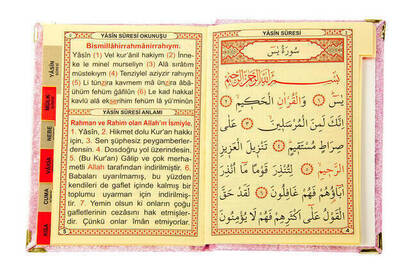 YÂSİN SÛRESİ OKUNUŞU
Bismillâhirrahmânirrahıym.
Yâsîn (1) Vel kur'ânil hakiym (2) İnne-
ke le minel murseliyn (3) Alâ sırâtım
müstekıym (4) Tenziylel aziyzir rahiym
(5) Li tünzira kavmem mâ ünzira âbâ-
ühüm fehüm ğâfilûn (6) Le kad hakkal
kavlü alâ ekserihim fehüm lâ yü'minûn
YÂSİN SÛRESİ ANLAMI
Rahman ve Rahim olan Allah'ın İsmiyle.
1. Yâsîn, 2. Hikmet dolu Kur'an hakkı
için, 3. Sen şüphesiz peygamberler-
densin. 4. Dosdoğru yol üzerindesin.
5. (Bu Kur'an) Gâlip ve çok merha-
metli Allah tarafından indirilmiştir. 6.
Babaları uyarılmamış, bu yüzden
kendileri de gaflet içinde kalmış bir
toplumu uyarman için indirilmiş-
tir. 7. Yemin olsun ki onların çoğu
gafletlerinin cezasını hak etmişler-
dir. Çünkü onlar îman etmiyorlar.
YÂSİN
MÜLK
NEBE
VÂKIA
CUMA
YÂSİN SÛRESİ
سُورَةُ يٰسٓ
بِسْمِ اللّٰهِ الرَّحْمٰنِ الرَّحِيمِ
يٰسٓ ﴿١﴾ وَالْقُرْاٰنِ الْحَكِيمِ ﴿٢﴾
اِنَّكَ لَمِنَ الْمُرْسَلِينَ ﴿٣﴾ عَلٰى
صِرَاطٍ مُسْتَقِيمٍ ﴿٤﴾ تَنْزِيلَ الْعَزِيزِ
الرَّحِيمِ ﴿٥﴾ لِتُنْذِرَ قَوْمًا مَٓا اُنْذِرَ
اٰبَٓاؤُ۬هُمْ فَهُمْ غَافِلُونَ ﴿٦﴾ لَقَدْ حَقَّ
الْقَوْلُ عَلٰٓى اَكْثَرِهِمْ فَهُمْ لَا يُؤْمِنُونَ